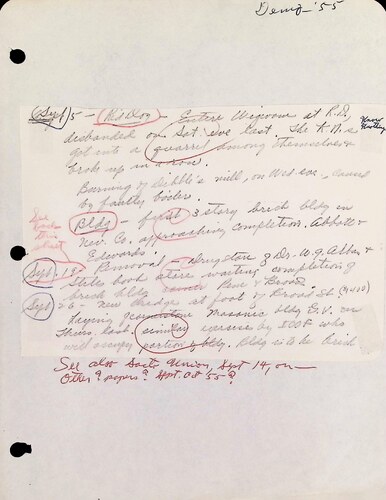 Demo-'55
Sept 5 - Pol Dog - Entire Wigwam at R.D.
Know
Nothing
disbanded on Sat. eve last. The K.N.s
got into a quarrel among themselves &
broke up in a row.
Burning of Dibble's mill, on Wed eve, caused
by faulty boiler.
See
back
this
sheet
Bldg - first 3 story brick bldg in
Nev. Co. approaching completion. Abbott &
Edwards
Sept. 18 Removal - Langston & Dr. W.G. Alban &
Stiles book store waiting completion of
brick bldg corner Pine & Broad
Sept 26 - New bridge at foot of Broad St.
Laying cornerstone Masonic bldg G.V. on
Thurs. last similar exercise by IOOF who
will occupy portion of bldg. Bldg is to be brick
See also Sacto Union, Sept 14, on
Other? papers? Sept. Oct 55?